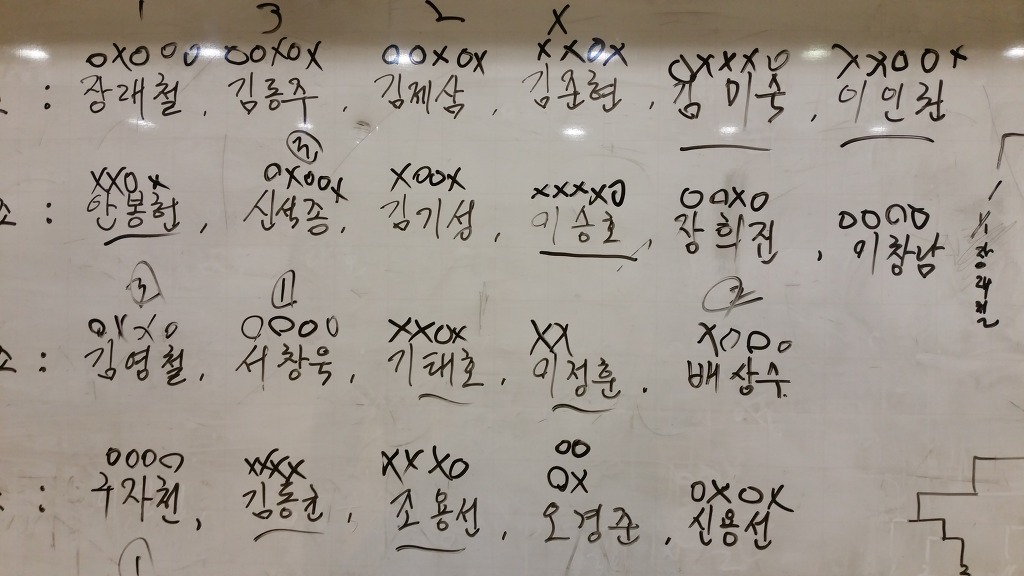 1 3 2 X
OXOOO OOXOX OOXOX XXOX OXXXXO XXOOX
: 장래철, 김룡주, 김제삼, 김준현, 김미숙, 이인권
③
XXOX OXOOX XOOX XXXXO OOXO OOOO
: 안봉헌, 신석종, 김기성, 이승호, 장희진, 이창남
장래철
③ ① ②
OXXO OOOO XXOX XX XOOO
: 김영철, 서창욱, 기태호, 이정훈, 배상수
OOOO XXXX XXXO OO
OX OXOX
: 구자천, 김동춘, 조용선, 오경준, 신용선
①